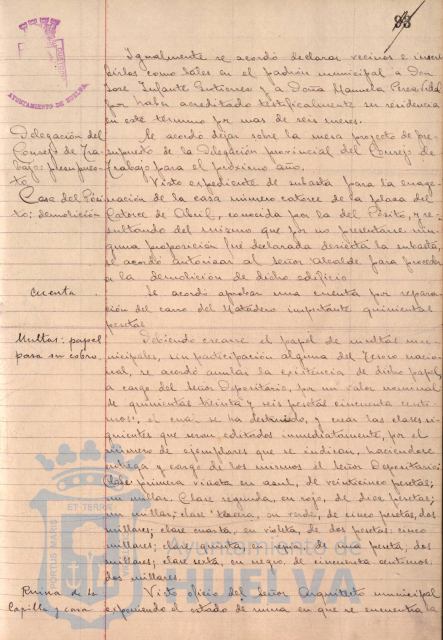 93
AYUNTAMIENTO DE HUELVA
Igualmente se acordó declarar vecinos e inscri
birlos como tales en el padrón municipal a Don
José Infante Gutierrez y a Doña Manuela Perea Vidal
por haber acreditado testificalmente su residencia
en este término por mas de seis meses.
Delegación del
Consejo de Tra-
bajo: presupues-
to
Se acordó dejar sobre la mesa proyecto de pre-
supuesto de la Delegación provincial del Consejo de
Trabajo para el próximo año.
Casa del Pósi-
to; demolición
Visto expediente de subasta para la enage-
nación de la casa número catorce de la plaza del
Catorce de Abril, conocida por la del Pósito, y re-
sultando del mismo que por no presentarse nin-
guna proposición fué declarada desierta la subasta,
se acordó autorizar al Señor Alcalde para proceder
a la demolición de dicho edificio
Cuenta
Se acordó aprobar una cuenta por repara-
ción del carro del Matadero importante quinientas
pesetas
Multas: papel
para su cobro.
Debiendo crearse el papel de multas mu-
nicipales, sin participación alguna del Tesoro nacio-
nal, se acordó anular la existencia de dicho papel,
a cargo del Señor Depositario, por un valor nominal
de quinientas treinta y seis pesetas cincuenta centi-
mos, el cual se ha destruido, y crear las clases si-
guientes que seran editadas inmediatamente, por el
número de ejemplares que se indican, haciendose
entrega y cargo de los mismos el Señor Depositario:
clase primera viñeta en azul, de veinticinco pesetas;
un millar. Clase segunda, en rojo, de diez pesetas;
un millar; clase tercera, en verde, de cinco pesetas, dos
millares; clase cuarta, en violeta, de dos pesetas: cinco
millares; clase quinta, en sepia, de una peseta, dos
millares; clase sexta, en negro, de cincuenta centimos:
dos millares.
Ruina de la
Capilla y casa
Visto oficio del Señor Arquitecto municipal
exponiendo el estado de ruina en que se encuentra la
PORTUS MARIS ET TERRE
Ayuntamiento de
HUELVA